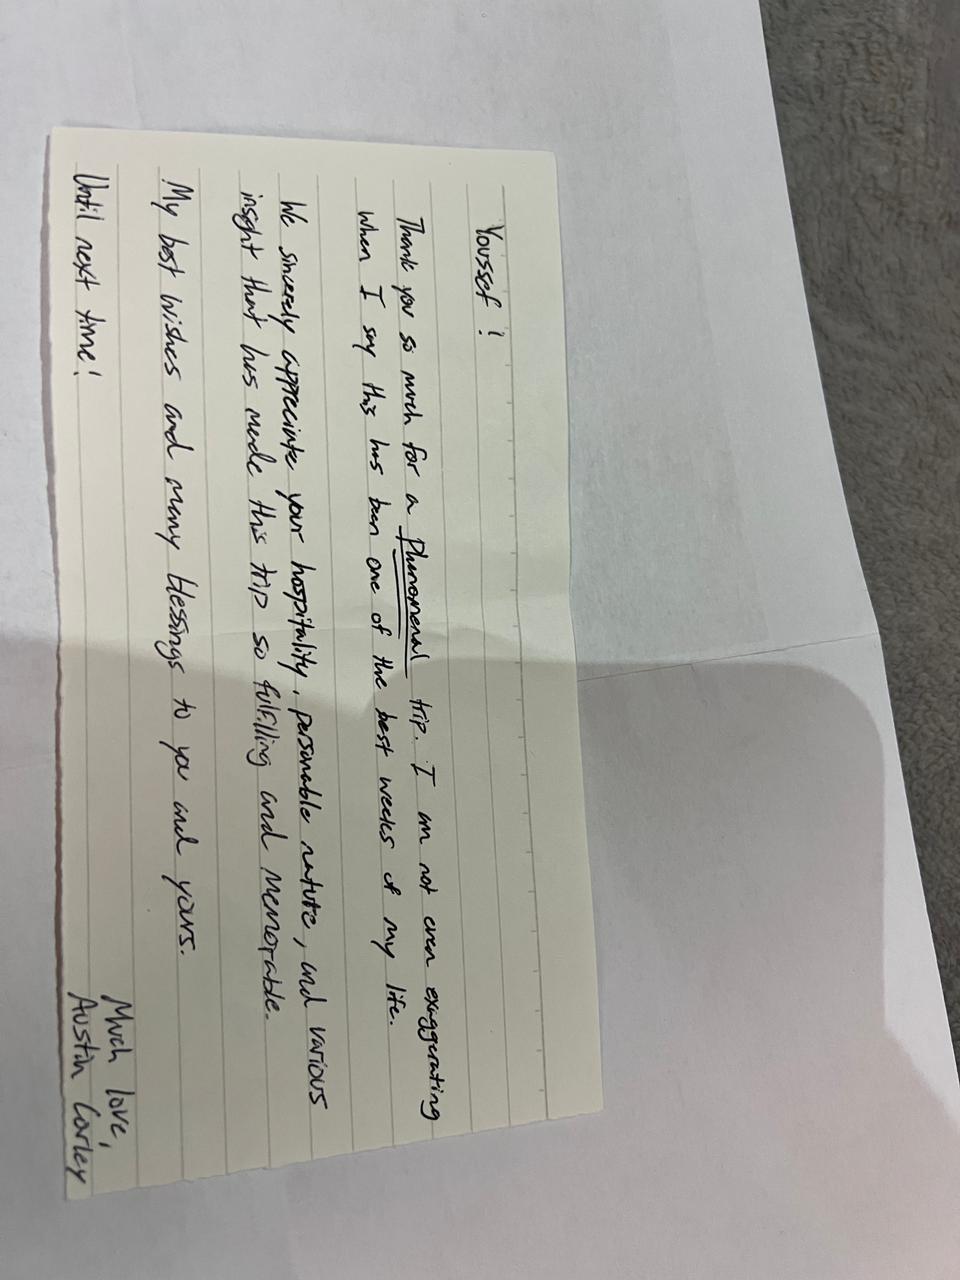 Youssef!
Thank you so much for a Phenomenal trip. I am not even exaggerating
when I say this has been one of the best weeks of my life.
We sincerely appreciate your hospitality, personable nature, and various
insight that has made this trip so fulfilling and memorable.
My best wishes and many blessings to you and yours.
Until next time!
Much love,
Austin Corley